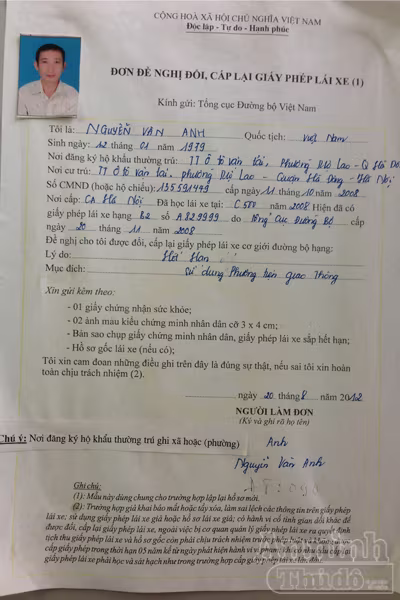 CỘNG HOÀ XÃ HỘI CHỦ NGHĨA VIỆT NAM
Độc lập - Tự do - Hạnh phúc
ĐƠN ĐỀ NGHỊ ĐỔI, CẤP LẠI GIẤY PHÉP LÁI XE (1)
Kính gửi: Tổng cục Đường bộ Việt Nam
Tôi là: NGUYỄN VĂN ANH Quốc tịch: Việt Nam
Sinh ngày: 12 tháng 01 năm 1979
Nơi đăng ký hộ khẩu thường trú: TT Ô tô vận tải, Phường Mộ Lao - Q Hà Đô
Nơi cư trú: TT ô tô vận tải, phường Mộ Lao - Quận Hà Đông - Hà Nội
Số CMND (hoặc hộ chiếu): 135591449 cấp ngày 11 tháng 10 năm 2008
Nơi cấp: CA Hà Nội Đã học lái xe tại: C500 năm 2008 Hiện đã có
giấy phép lái xe hạng B2 số A829999 do Tổng Cục Đường Bộ cấp
ngày 20 tháng 11 năm 2008
Đề nghị cho tôi được đổi, cấp lại giấy phép lái xe cơ giới đường bộ hạng:
Lý do: Hết Hạn
Mục đích: Sử dụng Phương tiện giao Thông
Xin gửi kèm theo:
- 01 giấy chứng nhận sức khỏe;
- 02 ảnh mau kiểu chứng minh nhân dân cỡ 3 x 4 cm;
- Bản sao chụp giấy chứng minh nhân dân, giấy phép lái xe sắp hết hạn;
- Hồ sơ gốc lái xe (nếu có);
Tôi xin cam đoan những điều ghi trên đây là đúng sự thật, nếu sai tôi xin hoàn
toàn chịu trách nhiệm (2).
ngày 20 tháng 8 năm 2012
NGƯỜI LÀM ĐƠN
(Ký và ghi rõ họ tên)
Chú ý: Nơi đăng ký hộ khẩu thường trú ghi xã hoặc (phường)
Anh
Nguyễn Văn Anh
Ghi chú:
(1): Mẫu này dùng chung cho trường hợp lập lại hồ sơ mới.
(2): Trường hợp khai báo mất hoặc tẩy xóa, làm sai lệch các thông tin trên giấy phép
lái xe; sử dụng giấy phép lái xe giả hoặc hồ sơ lái xe giả; có hành vi cố tình gian dối khác để
được đổi, cấp lại giấy phép lái xe, ngoài việc bị cơ quan quản lý giấy phép lái xe ra quyết định
tịch thu giấy phép lái xe và hồ sơ gốc còn phải chịu trách nhiệm trước pháp luật và không được
cấp giấy phép trong thời hạn 05 năm kể từ ngày phát hiện hành vi vi phạm
lái xe phải học và sát hạch như trong trường hợp cấp giấy phép lái xe
An ninh
Thủ đô